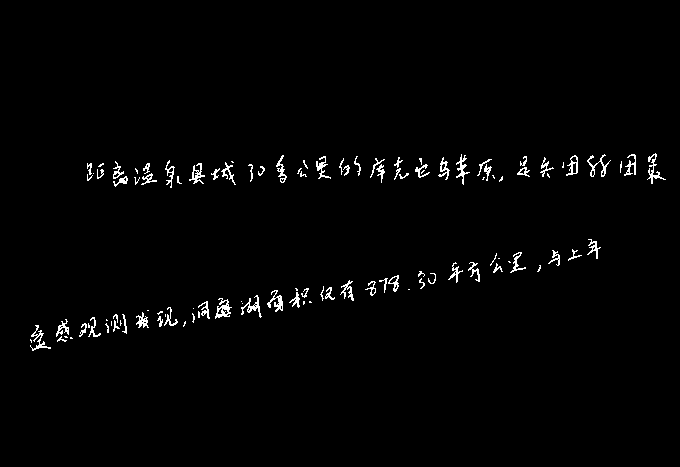 距离温泉县城30多公里的库克它乌草原,是兵团88团最
遥感观测发现,洞庭湖面积仅有878.30平方公里,与上年